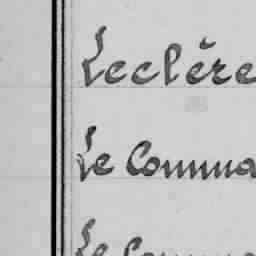 Leclère
Le Comma
Le Comma